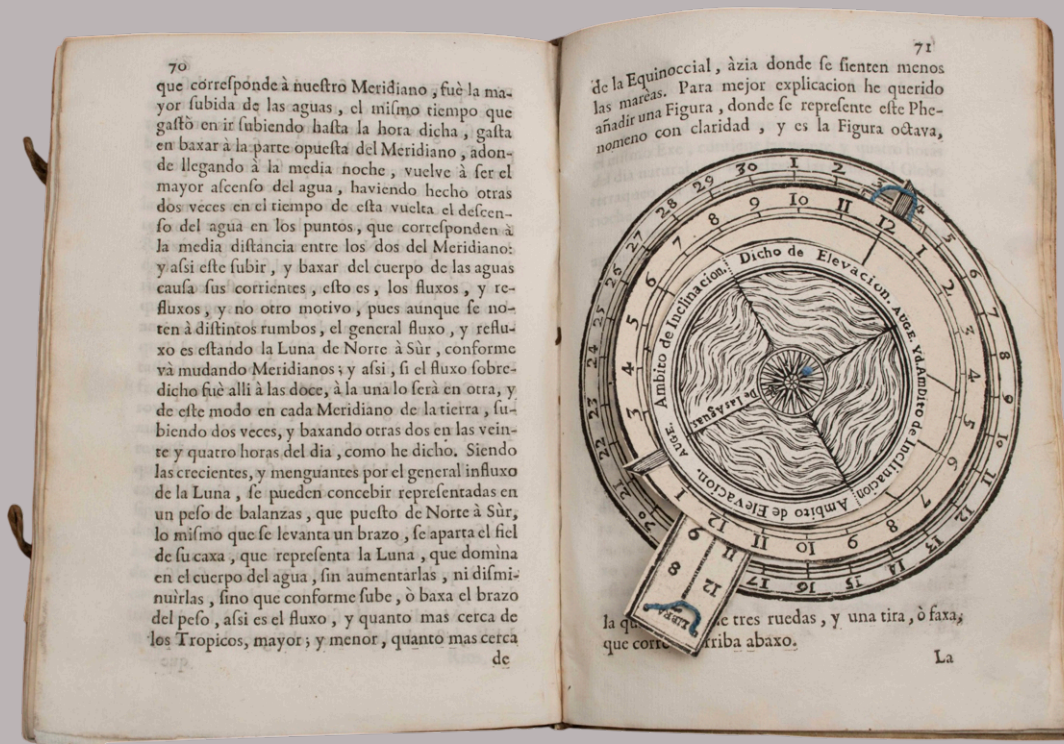 70
que corresponde à nuestro Meridiano, fuè la ma-
yor subida de las aguas, el mismo tiempo que
gastò en ir subiendo hasta la hora dicha, gasta
en baxar à la parte opuesta del Meridiano, adon-
de llegando à la media noche, vuelve à ser el
mayor ascenso del agua, haviendo hecho otras
dos veces en el tiempo de esta vuelta el descen-
so del agua en los puntos, que corresponden à
la media distancia entre los dos del Meridiano:
y assi este subir, y baxar del cuerpo de las aguas
causa sus corrientes, esto es, los fluxos, y re-
fluxos, y no otro motivo, pues aunque se no-
ten à distintos rumbos, el general fluxo, y reflu-
xo es estando la Luna de Norte à Sùr, conforme
và mudando Meridianos; y assi, si el fluxo sobre-
dicho fuè alli à las doce, à la una lo serà en otra, y
de este modo en cada Meridiano de la tierra, su-
biendo dos veces, y baxando otras dos en las vein-
te y quatro horas del dia, como he dicho. Siendo
las crecientes, y menguantes por el general influxo
de la Luna, se pueden concebir representadas en
un peso de balanzas, que puesto de Norte à Sùr,
lo mismo que se levanta un brazo, se aparta el fiel
de su caxa, que representa la Luna, que domìna
en el cuerpo del agua, sin aumentarlas, ni dismi-
nuìrlas, sino que conforme sube, ò baxa el brazo
del peso, assi es el fluxo, y quanto mas cerca de
los Tropicos, mayor; y menor, quanto mas cerca
de
71
de la Equinoccial, àzia donde se sienten menos
las marèas. Para mejor explicacion he querido
añadir una Figura, donde se represente este Phe-
nomeno con claridad, y es la Figura octava,
30 1 2 3 4 5 6 7 8 9 10 11 12 13 14 15 16 17 20 21 22 23 24 25 26 27 28 29
12 1 3 4 5 6 7 8 9 10 11 12 1 3 4 5 6 7 8 9 10 11
Dicho de Elevacion.
AUGE. Yd.
Ambito de Inclinacion
Ambito de Elevacion.
AUGE.
De las Aguas
Ambito de Inclinacion.
9 11
8 12
LIBRA
la qu e tres ruedas, y una tira, ò faxa,
que corre rriba abaxo.
La